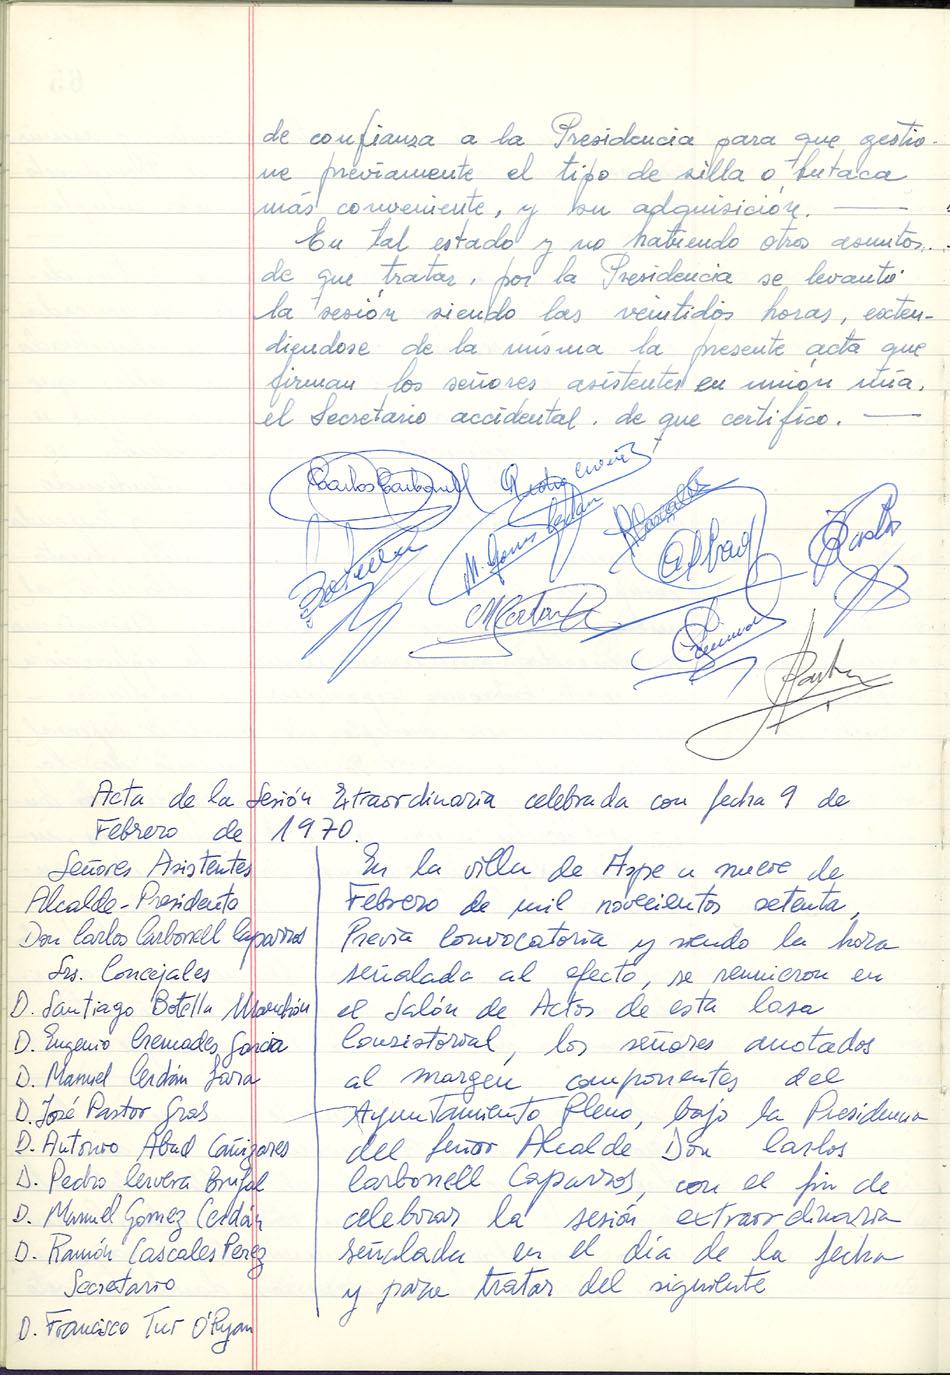 de confianza a la Presidencia para que gestio-
ne previamente el tipo de silla o butaca
más conveniente, y su adquisición.
En tal estado y no habiendo otros asuntos
de que tratar, por la Presidencia se levantó
la sesión siendo las veintidos horas, exten-
diendose de la misma la presente acta que
firman los señores asistentes en unión mía,
el Secretario accidental, de que certifico.
Carlos Carbonell
M. Gomez Cerdan
RCascales
Abad
Acta de la Sesión Extraordinaria celebrada con fecha 9 de
Febrero de 1970.
Señores Asistentes
Alcalde-Presidente
Don Carlos Carbonell Caparros
Srs. Concejales
D. Santiago Botella
D. Eugenio Cremades Garcia
D. Manuel Cerdán Jara
D. José Pastor Gras
D. Antonio Abad Cañizares
D. Pedro Cervera Brufal
D. Manuel Gomez Cerdán
D. Ramón Cascales Perez
Secretario
D. Francisco Tur O'Ryan
En la villa de Aspe a nueve de
Febrero de mil novecientos setenta,
Previa Convocatoria y siendo la hora
señalada al efecto, se reunieron en
el Salón de Actos de esta Casa
Consistorial, los señores anotados
al margen componentes del
Ayuntamiento Pleno, bajo la Presidencia
del Señor Alcalde Don Carlos
Carbonell Caparros, con el fin de
celebrar la sesión extraordinaria
señalada en el día de la fecha
y para tratar del siguiente